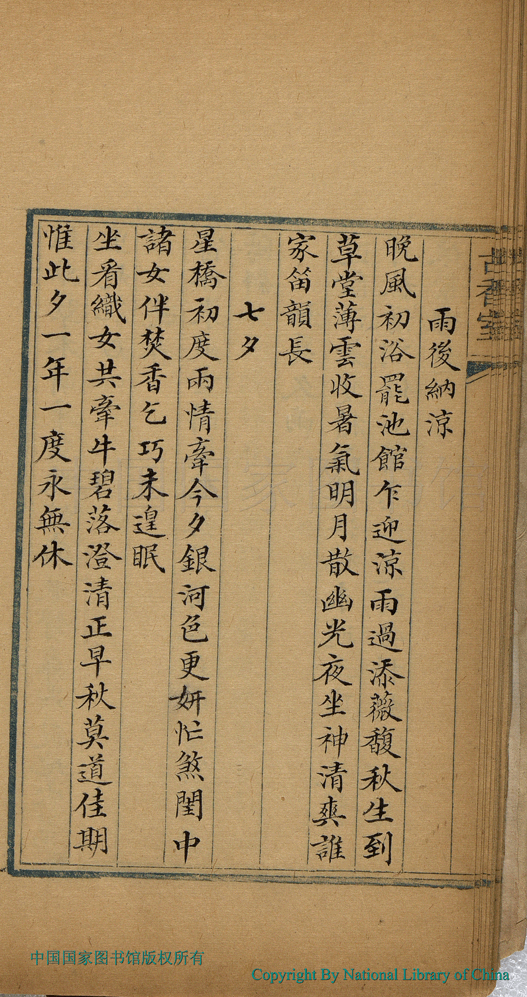 雨後納涼
晚風初浴罷池館乍迎涼雨過添薇馥秋生到
草堂薄雲收暑氣明月散幽光夜坐神清爽誰
家笛韻長
七夕
星橋初度兩情牽今夕銀河色更妍忙煞閨中
諸女伴焚香乞巧未遑眠
坐看織女共牽牛碧落澄清正早秋莫道佳期
惟此夕一年一度永無休
中国国家图书馆版权所有
Copyright By National Library of China